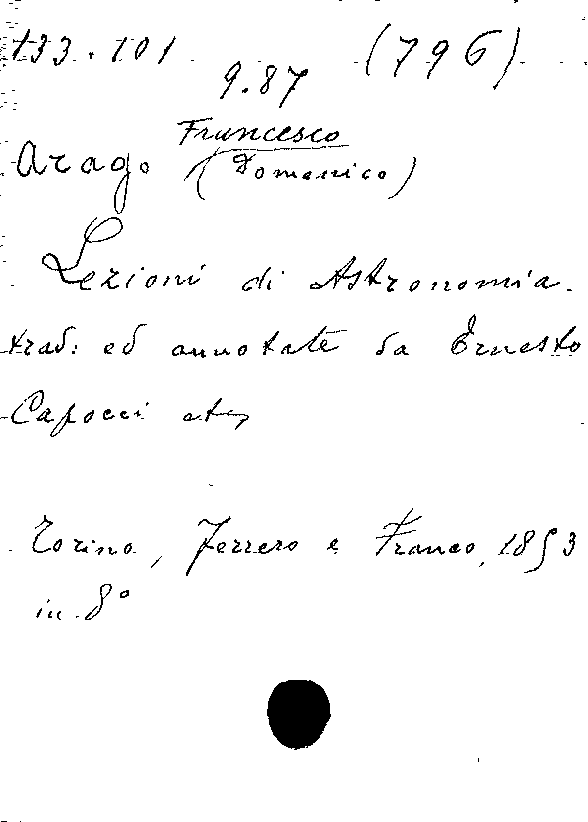 133.101 (796)
9.87
Francesco
Arago (Domenico)
Lezioni di Astronomia.
trad: ed annotate da Ernesto
Capocci etc
Torino, Ferrero e Franco, 1853
in 8°